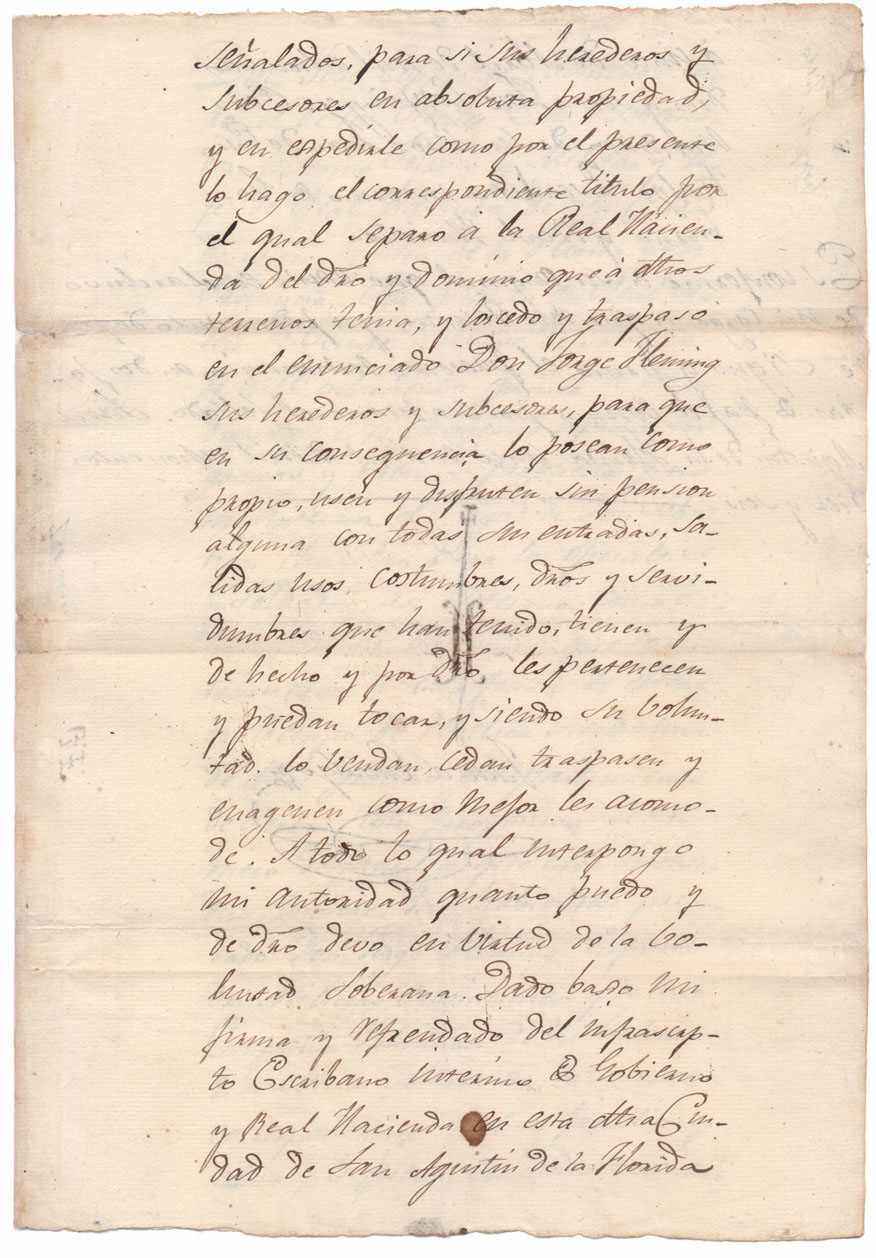 señalados, para si sus herederos y
subcesores en absoluta propiedad,
y en espedirle como por el presente
lo hago el correspondiente titulo por
el qual separo á la Real Hacien-
da del dro y dominio que á dhos
terrenos tenia, y lo cedo y traspaso
en el enunciado Don Jorge Fleming
sus herederos y subcesores, para que
en su consequencia lo posean como
propio, usen y disfruten sin pension
alguna con todas sus entradas, sa-
lidas usos, costumbres, dros y servi-
dumbres que han tenido, tienen y
de hecho y por dro les pertenecen
y puedan tocar, y siendo su bolun-
tad lo vendan, cedan traspasen y
enagenen como mejor les acomo-
de. A todo lo qual interpongo
mi autoridad quanto puedo y
de dro devo en virtud de la bo-
luntad Soberana. Dado baxo mi
firma y refrendado del infrascrip-
to Escribano interino de Gobierno
y Real Hacienda en esta dha Ciu-
dad de San Agustin de la Florida